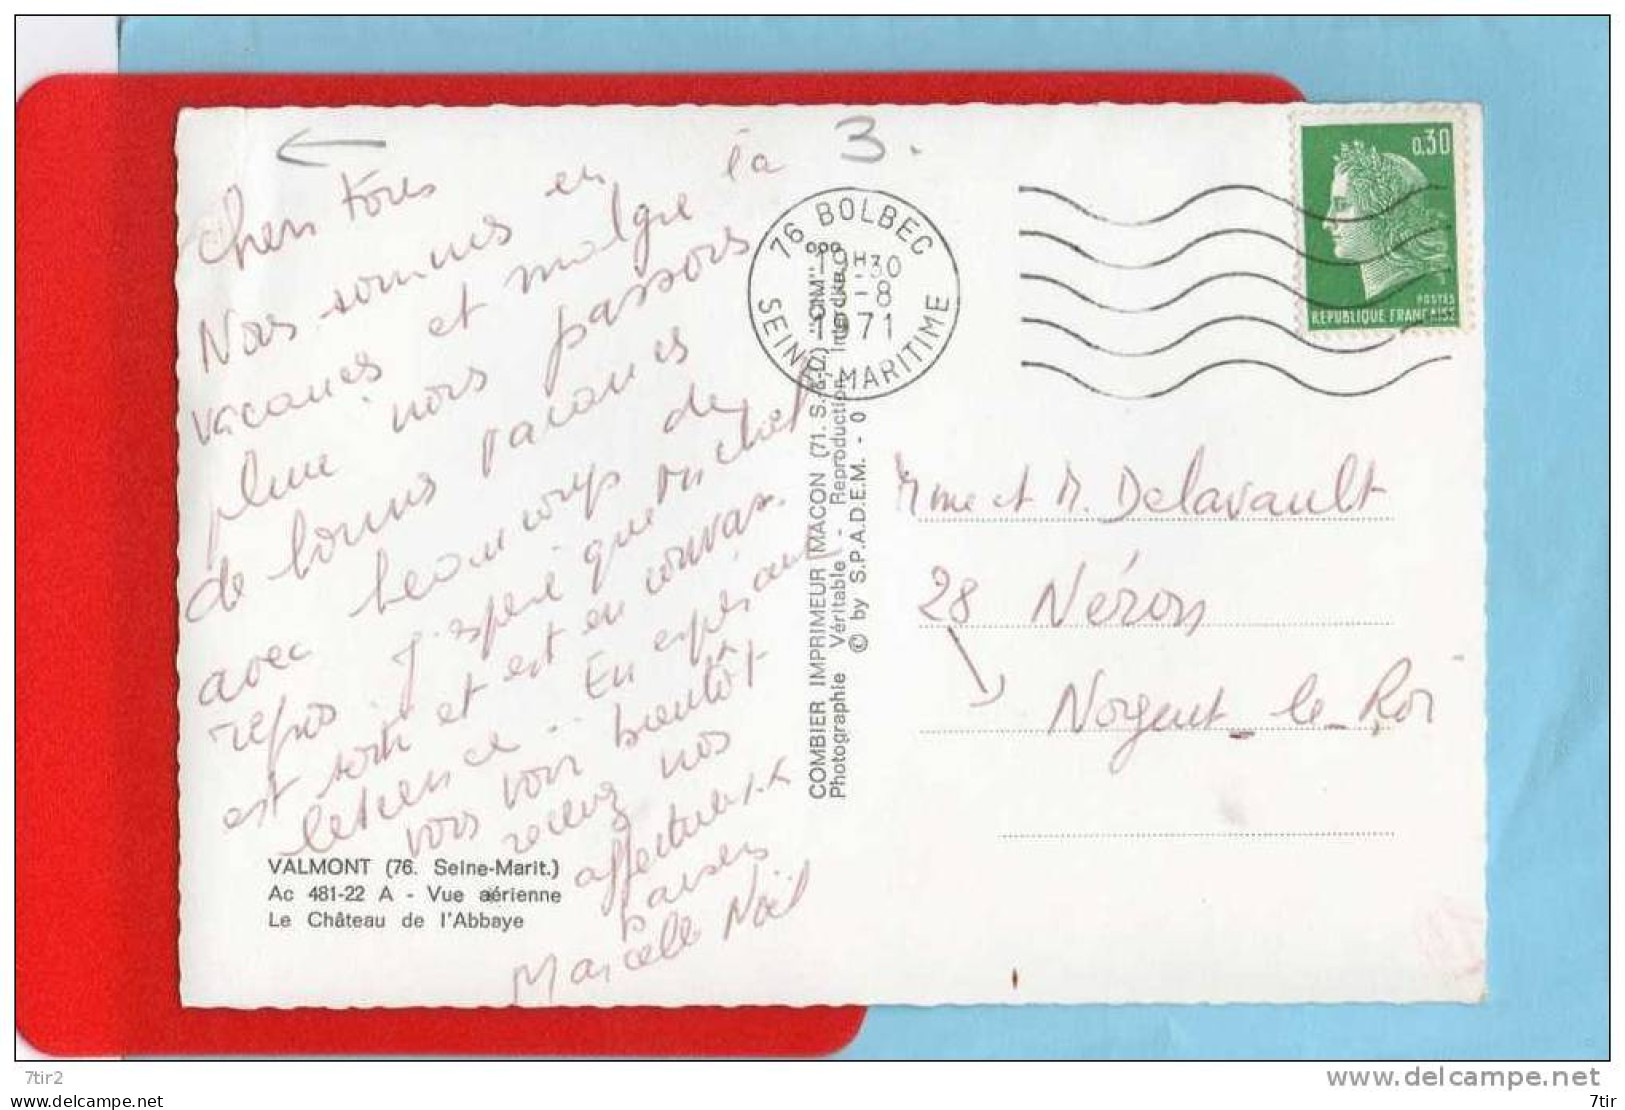 3.
Chers tous
Nous sommes en
vacances et malgré la
pluie nous passons
de bonnes vacances
avec beaucoup de
repos. J'espère que Michel
est sorti et est en conva
lescence. En espérant
vous voir bientôt
recevez nos
affectueux
baisers
Marcelle Noël
VALMONT (76. Seine-Marit.)
Ac 481-22 A - Vue aérienne
Le Château de l'Abbaye
COMBIER IMPRIMEUR MACON (71. S.-&-L.) "CIM"
Photographie Véritable - Reproduction Interdite
© by S.P.A.D.E.M. - 0
76 BOLBEC
19H30
-8
1971
SEINE-MARITIME
0,30
POSTES
REPUBLIQUE FRANÇAISE
Mme et M. Delavault
28 Néron
Nogent-le-Roi
7tir2
www.delcampe.net
7tir